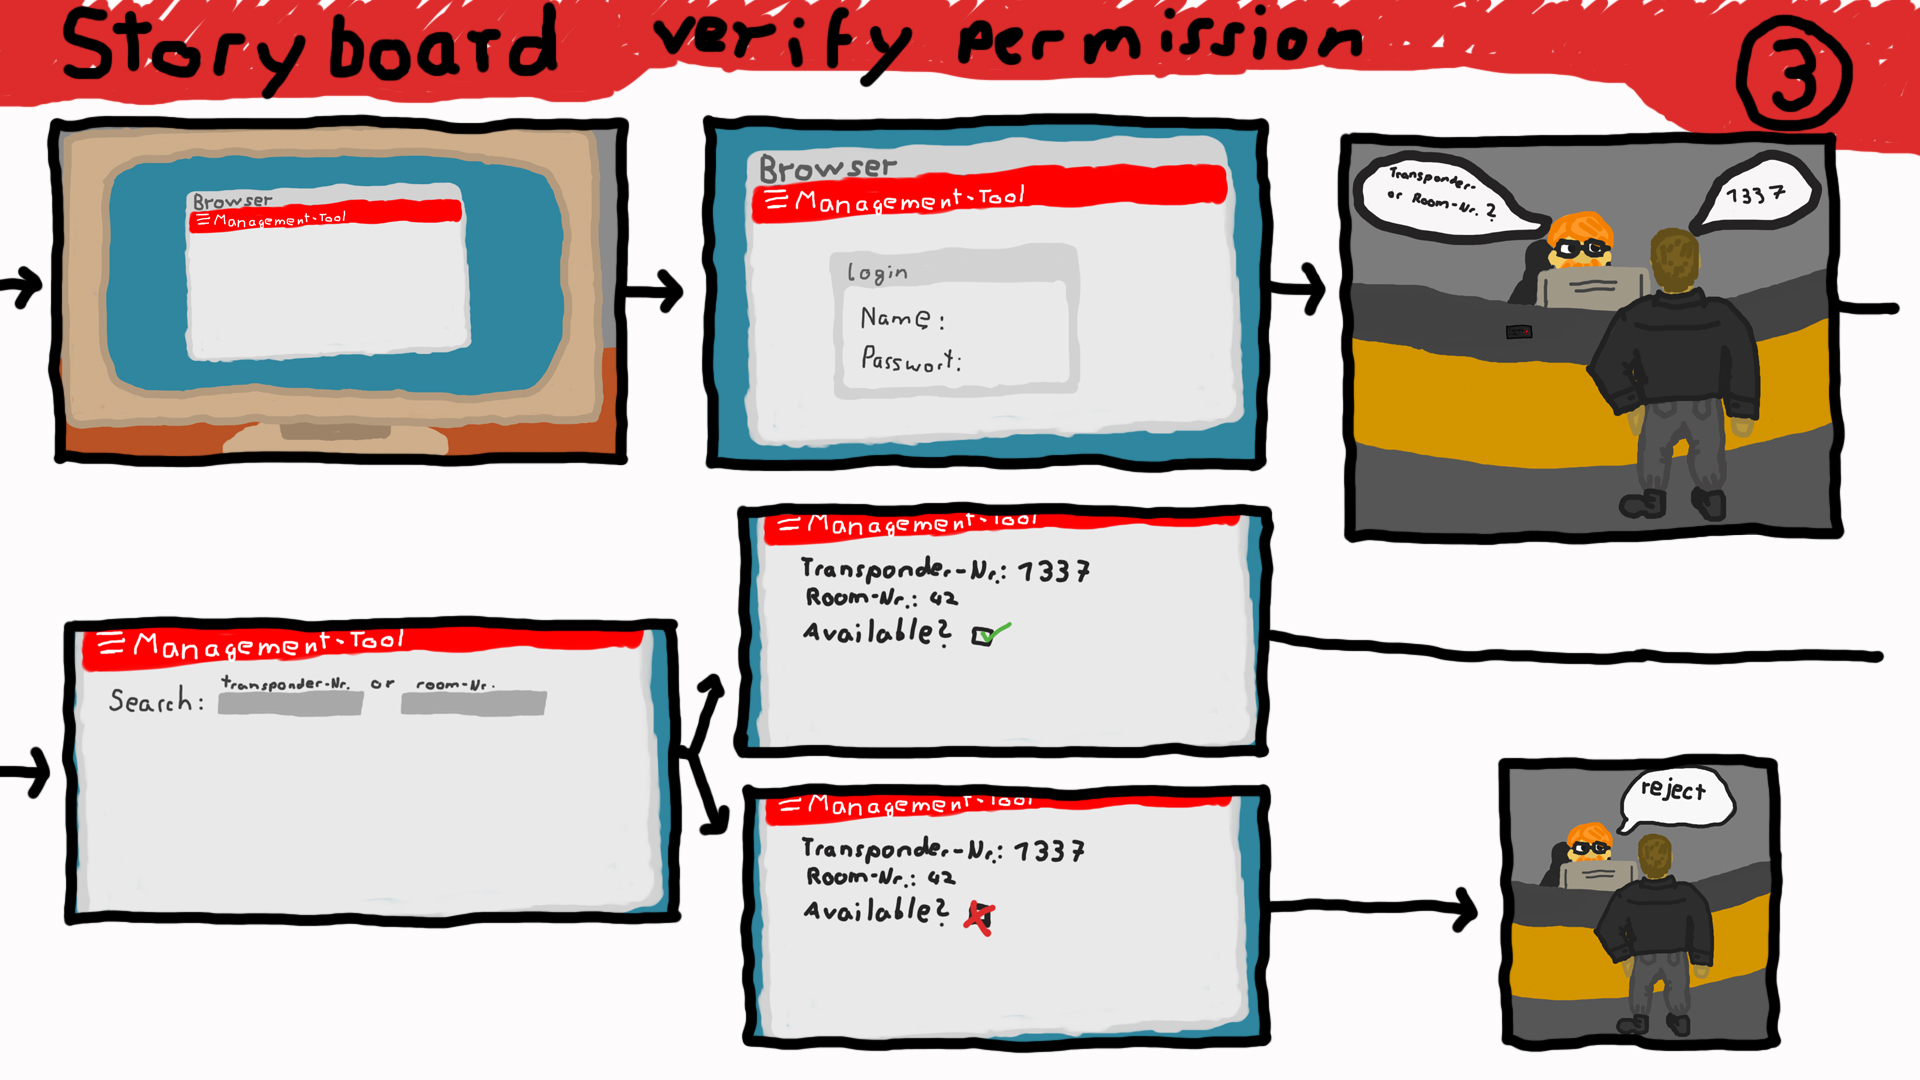 Storyboard verify permission
3
Browser
Management-Tool
Browser
Management-Tool
Login
Name:
Passwort:
Transponder-
or Room-Nr. ?
1337
Management-Tool
Search: transponder-Nr. or room-Nr.
Management-Tool
Transponder-Nr.: 1337
Room-Nr.: 42
Available?
Management-Tool
Transponder-Nr.: 1337
Room-Nr.: 42
Available?
reject